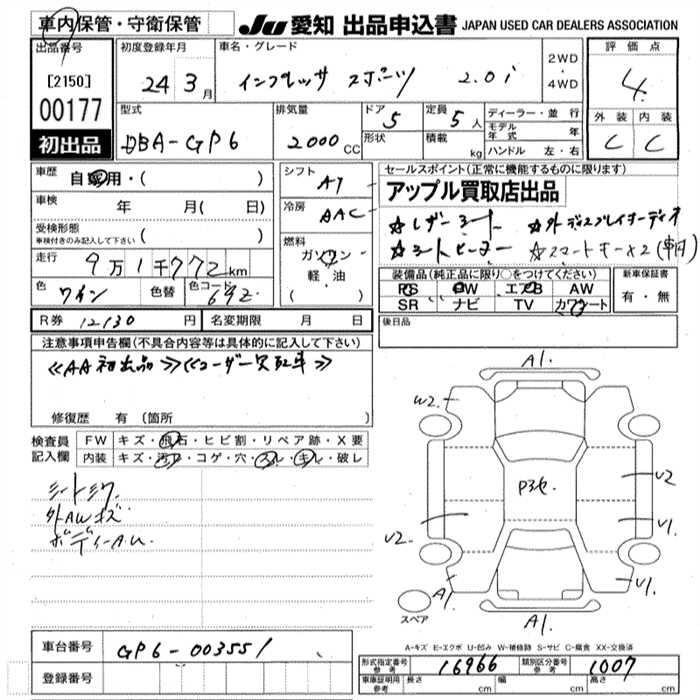 車内保管・守衛保管
JU 愛知 出品申込書 JAPAN USED CAR DEALERS ASSOCIATION
出品番号
[2150]
00177
初出品
初度登録年月
24 3月
車名・グレード
インプレッサ スポーツ 2.0i
2WD
・
4WD
評価点
4
外装 内装
C C
型式
DBA-GP6
排気量
2000 CC
ドア 5
形状
定員 5人
積載 kg
ディーラー・並行
モデル年式 年
ハンドル 左・右
車歴 自家用・( )
車検 年 月( 日)
受検形態
車検付きのみ記入して下さい ( )
走行 9万1千772km
色 ワイン 色替 色コード 69Z
シフト AT
冷房 AAC
燃料
ガソリン
・
軽油
( )
セールスポイント(正常に機能するものに限ります)
アップル買取店出品
☆レザーシート ☆外ディスプレイオーディオ
☆シートヒーター ☆スマートキー×2(車内)
装備品(純正品に限り○をつけてください)
PS PW エアB AW
SR ナビ TV カワシート
新車保証書
有・無
後日品
R券 12130 円 名変期限 月 日
注意事項申告欄(不具合内容等は具体的に記入して下さい)
≪AA初出品≫≪ユーザー買取車≫
修復歴 有 (箇所 )
検査員記入欄
FW キズ・飛石・ヒビ割・リペア跡・X要
内装 キズ・汚れ・コゲ・穴・スレ・キレ・破レ
シートシワ
外AWキズ
ボディーA.U.
A1.
W2.
P3セ.
U2
U1.
U2.
A1.
U1.
A1.
スペア
A-キズ E-エクボ U-凹み W-補修跡 S-サビ C-腐食 XX-交換済
車台番号 GP6-003551
登録番号
形式指定番号 参考 16966 類別区分番号 参考 1007
車庫証明用 参考 長さ cm 幅 cm 高さ cm